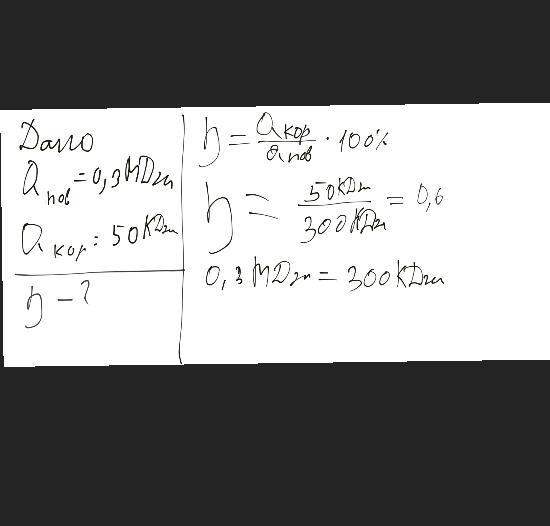 Дано
Qпов = 0,3МДж
Qкор = 50кДж
η - ?
η = Qкор/Qпов · 100%
η = 50кДж/300кДж = 0,6
0,3МДж = 300кДж